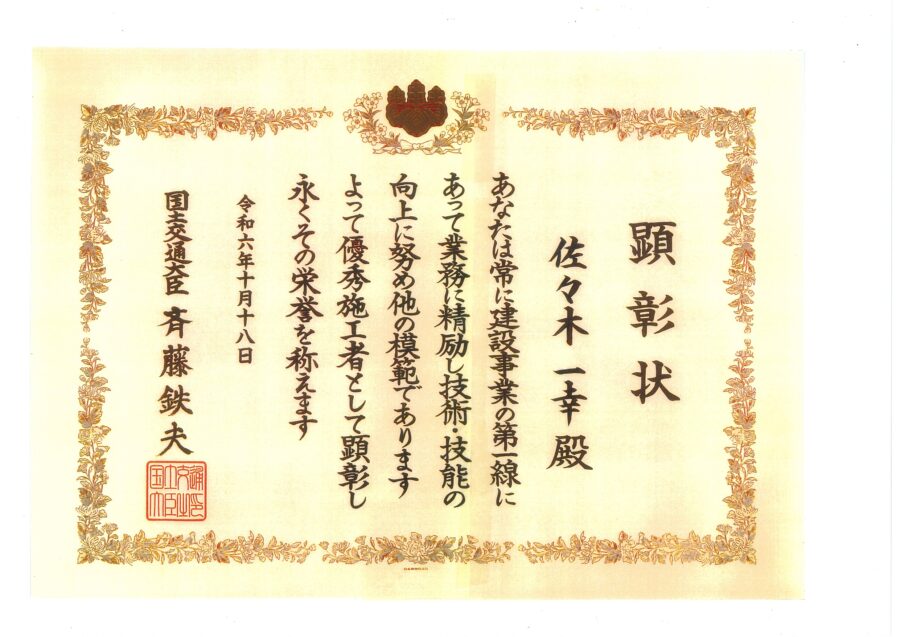 顕彰状
佐々木一幸殿
あなたは常に建設事業の第一線に
あって業務に精励し技術・技能の
向上に努め他の模範であります
よって優秀施工者として顕彰し
永くその栄誉を称えます
令和六年十月十八日
国土交通大臣 斉藤鉄夫